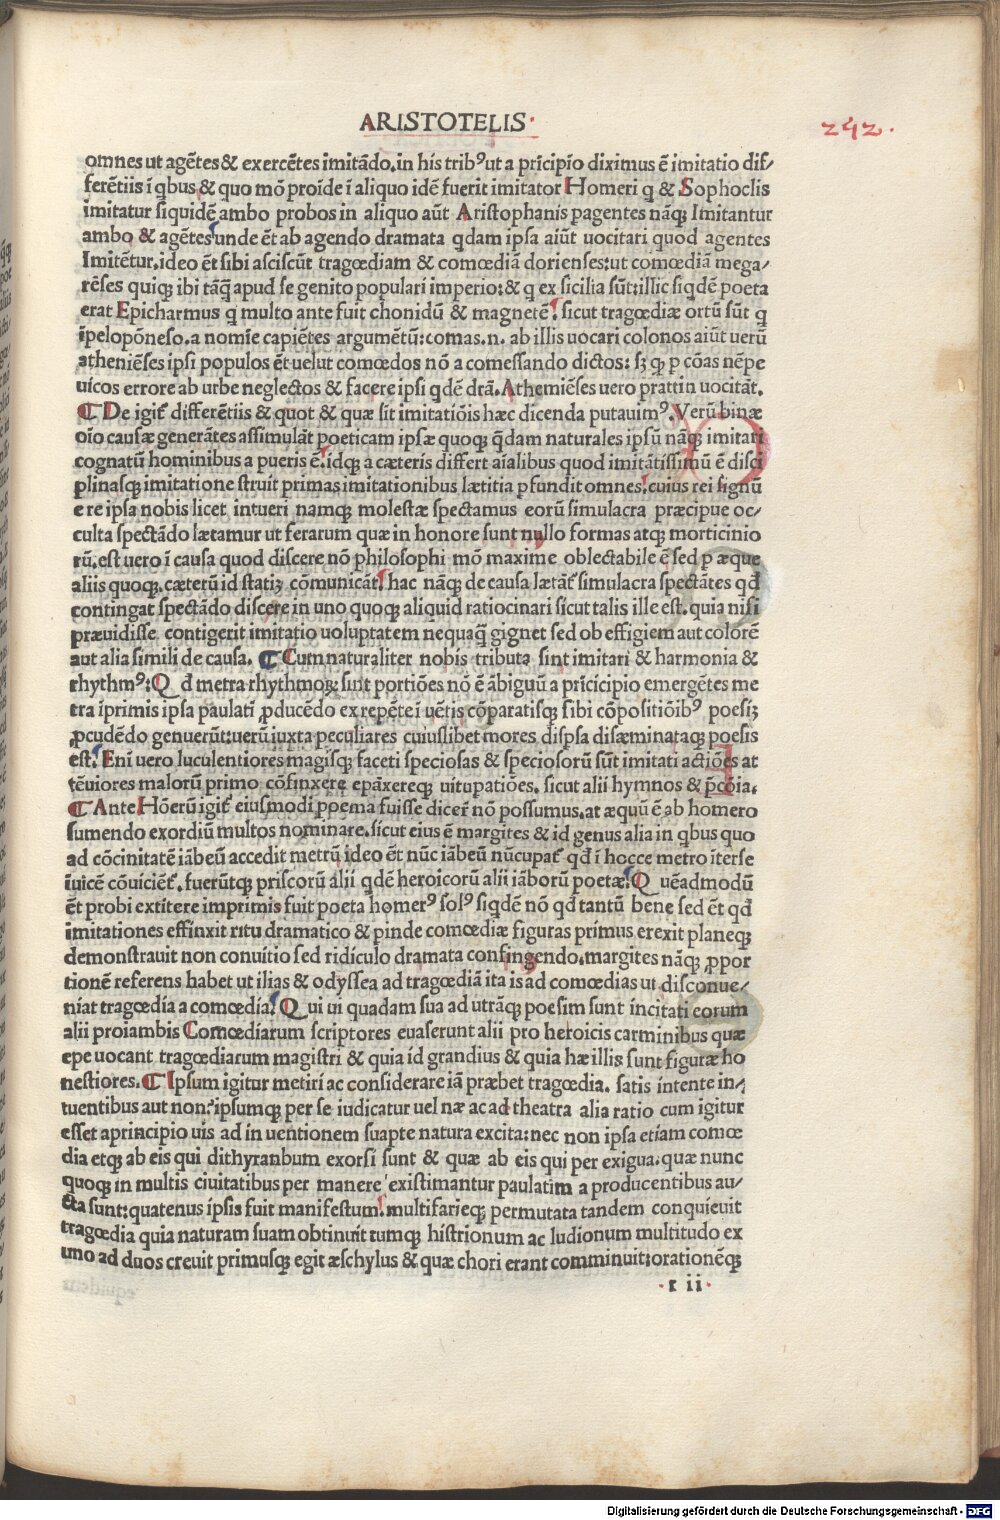 ARISTOTELIS
242.
omnes ut agētes & exercētes imitādo. in his trib⁹ ut a prīcipio diximus ē imitatio dif⸗
ferētiis ī qbus & quo mō proīde ī aliquo idē fuerit imitator Homeri q & Sophoclis
imitatur siquidē ambo probos in aliquo aūt Aristophanis pagentes nāqꝫ Imitantur
ambo & agētes unde ēt ab agendo dramata qdam ipsa aiūt uocitari quod agentes
Imitētur. ideo ēt sibi asciscūt tragœdiam & comœdiā dorienses: ut comœdiā mega⸗
rēses quiqꝫ ibi tāq̄ apud se genito populari imperio: & q ex sicilia sūt: illic siqdē poeta
erat Epicharmus q multo ante fuit chonidū & magnetē. sicut tragœdiæ ortū sūt q
īpelopōneso. a nomīe capiētes argumētū: comas .n. ab illis uocari colonos aiūt uerū
atheniēses ipsi populos ēt uelut comœdos nō a comessando dictos: sꝫ qꝙ p cōas nēpe
uicos errore ab urbe neglectos & facere ipsi qdē drā. Athemiēses uero prattin uocitāt.
¶ De igit̄ differētiis & quot & quæ sīt imitatiōis hæc dicenda putauim⁹. Verū binæ
oīo causæ generātes assimulāt poeticam ipsæ quoqꝫ q̄dam naturales ipsū nāqꝫ imitari
cognatū hominibus a pueris ē. idqꝫ a cæteris differt aīalibus quod imitātissimū ē disci
plinasqꝫ imitatione struit primas imitationibus lætitia pfundit omnes. cuius rei signū
e re ipsa nobis licet intueri namqꝫ molestæ spectamus eorū simulacra præcipue oc⸗
culta spectādo lætamur ut ferarum quæ in honore sunt nullo formas atqꝫ morticinio
rū. est uero ī causa quod discere nō philosophi mō maxime oblectabile ē sed p æque
aliis quoqꝫ. cæterū id statiꝫ cōmunicāt. hac nāqꝫ de causa lætāt̄ simulacra spectātes qđ
contingat spectādo discere in uno quoqꝫ aliquid ratiocinari sicut talis ille est. quia nisi
præuidisse contigerit imitatio uoluptatem nequaq̄ gignet sed ob effigiem aut colorē
aut alia simili de causa. ¶ Cum naturaliter nobis tributa sint imitari & harmonia &
rhythm⁹: Qđ metra rhythmoꝝ sint portiōes nō ē ābiguū a prīcicipio emergētes me
tra īprimis ipsa paulatī ꝓducēdo ex repēte ī uētis cōparatisqꝫ sibi cōpositiōib⁹ poesiꝫ
ꝓcudēdo genuerūt: uerū iuxta peculiares cuiuslibet mores dispsa disæminataqꝫ poesis
est. Enī uero luculentiores magisqꝫ faceti speciosas & speciosorū sūt imitati actiōes at
tēuiores malorū primo cōfinxere epāxereqꝫ uitupatiōes. sicut alii hymnos & p̄cōia.
¶ Ante Hōerū igit̄ eiusmodi poema fuisse dicer̄ nō possumus. at æquū ē ab homero
sumendo exordiū multos nominare. sicut eius ē margites & id genus alia in qbus quo
ad cōcinitatē iābeū accedit metrū ideo ēt nūc iābeū nūcupat̄ qđ ī hocce metro īterse
īuicē cōuiciēt̄. fuerūtqꝫ priscorū alii qdē heroicorū alii iāborū poetæ. Quēadmodū
ēt probi extitere imprimis fuit poeta homer⁹ sol⁹ siqdē nō qđ tantū bene sed ēt qđ
imitationes effinxit ritu dramatico & pinde comœdiæ figuras primus erexit planeqꝫ
demonstrauit non conuitio sed ridiculo dramata confingendo. margites nāqꝫ ꝓpor
tionē referens habet ut ilias & odyssea ad tragœdiā ita is ad comœdias ut disconue⸗
niat tragœdia a comœdia. Qui ui quadam sua ad utrāqꝫ poesim sunt incitati eorum
alii proiambis Comœdiarum scriptores euaserunt alii pro heroicis carminibus quæ
epe uocant tragœdiarum magistri & quia id grandius & quia hæ illis sunt figuræ ho
nestiores. ¶ Ipsum igitur metiri ac considerare iā præbet tragœdia. satis intente in⸗
tuentibus aut non? ipsumqꝫ per se iudicatur uel næ ac ad theatra alia ratio cum igitur
esset aprincipio uis ad in uentionem suapte natura excita: nec non ipsa etiam comœ
dia etqꝫ ab eis qui dithyranbum exorsi sunt & quæ ab eis qui per exigua. quæ nunc
quoqꝫ in multis ciuitatibus per manere existimantur paulatim a producentibus au⸗
cta sunt: quatenus ipsis fuit manifestum. multifarieqꝫ permutata tandem conquieuit
tragœdia quia naturam suam obtinuit tumqꝫ histrionum ac ludionum multitudo ex
uno ad duos creuit primusqꝫ egit æschylus & quæ chori erant comminuit: orationēqꝫ
r ii
Digitalisierung gefördert durch die Deutsche Forschungsgemeinschaft - DFG